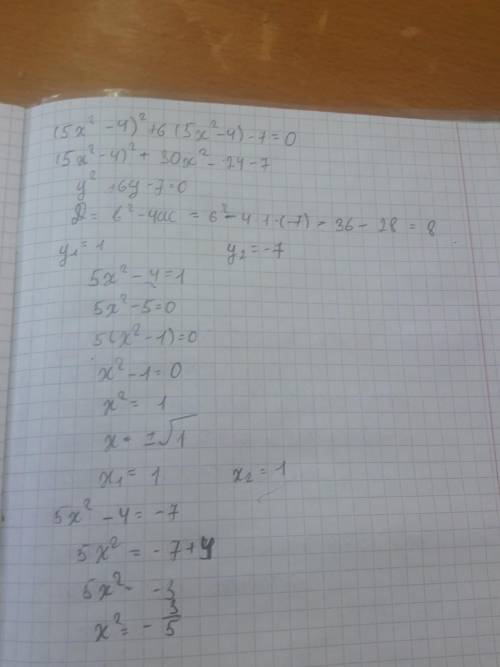 (5x² - 4)² + 6(5x² - 4) - 7 = 0
(5x² - 4)² + 30x² - 24 - 7
y² + 6y - 7 = 0
D = b² - 4ac = 6² - 4 · 1 · (-7) = 36 - 28 = 8
y₁ = 1 y₂ = -7
5x² - 4 = 1
5x² - 5 = 0
5(x² - 1) = 0
x² - 1 = 0
x² = 1
x = ±√1
x₁ = 1 x₂ = 1
5x² - 4 = -7
5x² = -7 + 4
5x² = -3
x² = -3/5